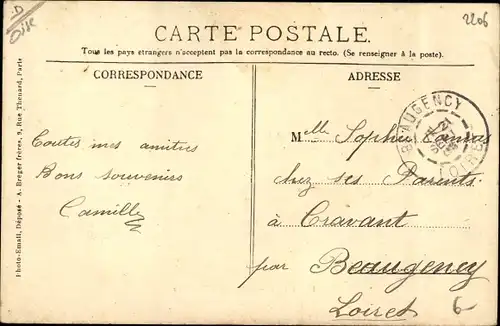 Oise
2206
CARTE POSTALE
Tous les pays étrangers n'acceptent pas la correspondance au recto. (Se renseigner à la poste).
CORRESPONDANCE
ADRESSE
Photo-Email, Déposé - A. Breger frères, 9, Rue Thenard, Paris
Toutes mes amitiés
Bons souvenirs
Camille
BEAUGENCY
LOIRET
Melle Sophie
chez ses Parents
à Cravant
par Beaugency
Loiret
6-